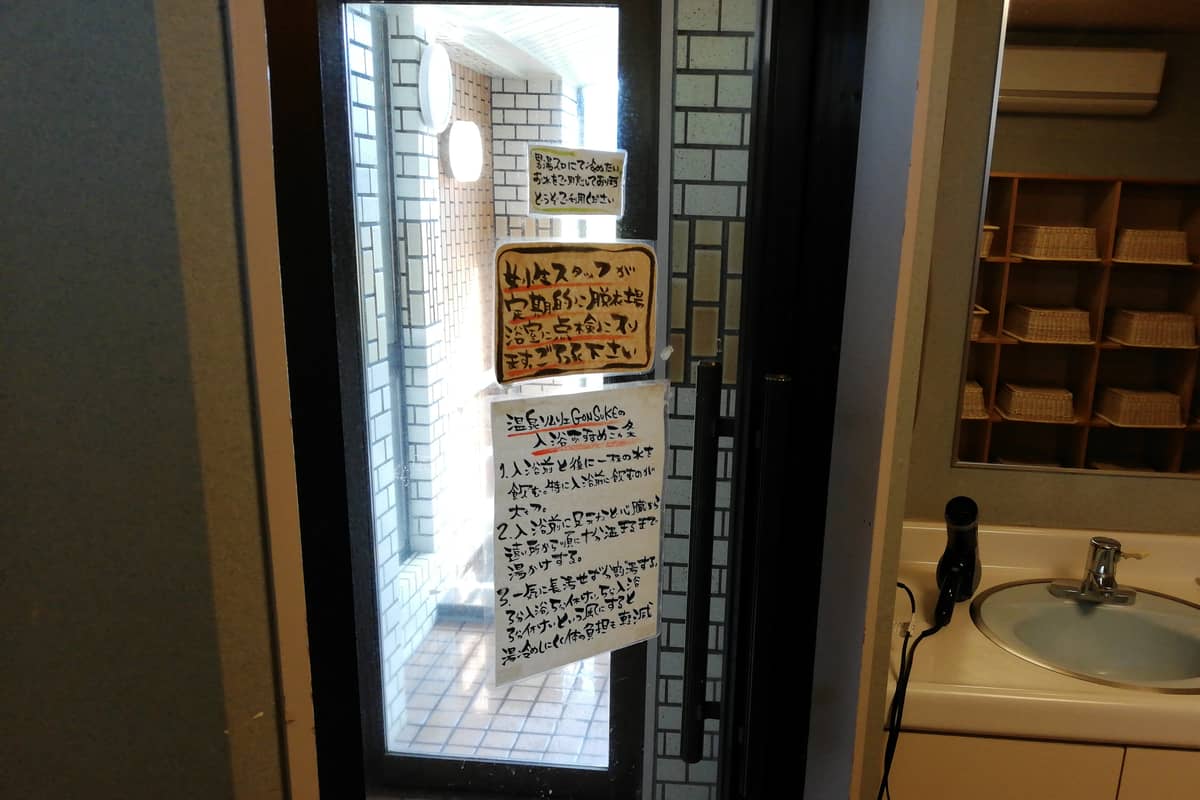 男湯入口にて冷めたい
お水をご用意しております
どうぞご利用ください
女性スタッフが
定期的に脱衣場
浴室に点検に入り
ます。ご了承下さい
温泉ソムリエGONSUKEの
入浴のすすめ三ヶ条
1.入浴前と後に一杯の水を
飲む。特に入浴前に飲むのが
2.入浴前に足元から心臓から
遠い所から順に十分温まるまで
湯かけする。
3.一気に長湯せず分割浴する。
3分入浴5分休けい、5分入浴
3分休けいという風にすると
湯冷めしにくく体の負担も軽減